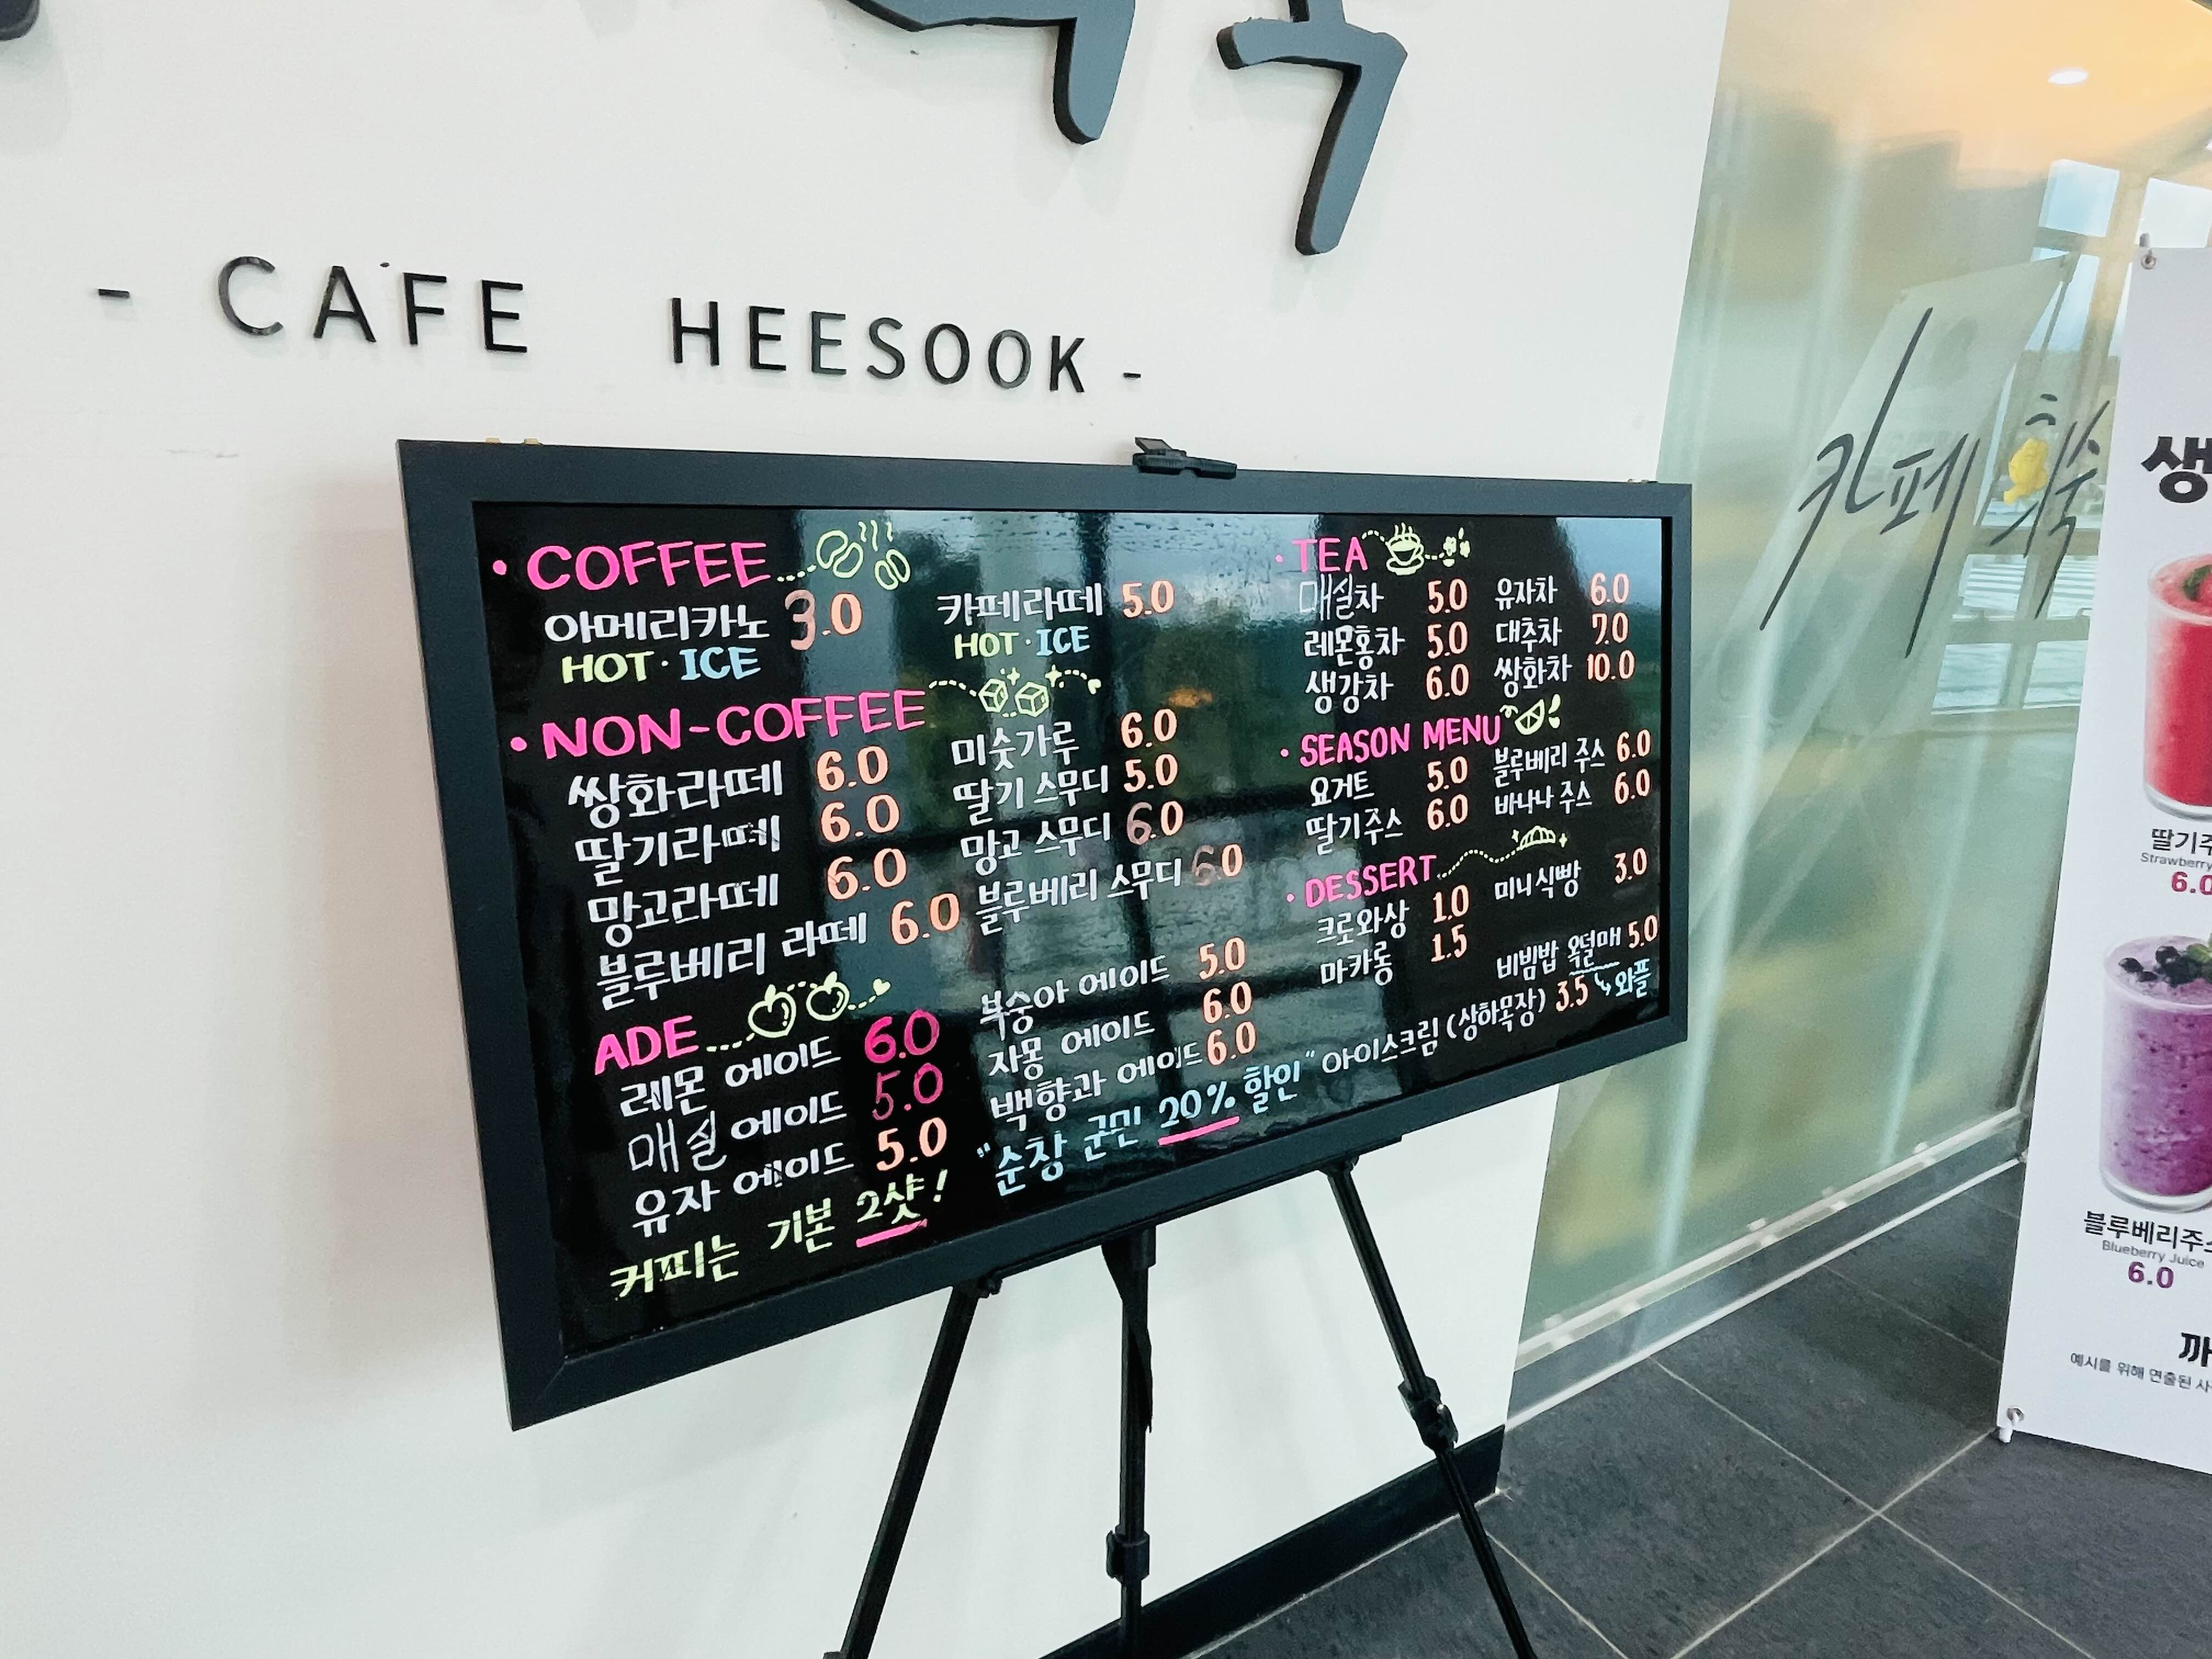 - CAFE HEESOOK -
• COFFEE
아메리카노 3.0
HOT · ICE
카페라떼 5.0
HOT · ICE
• NON-COFFEE
쌍화라떼 6.0
딸기라떼 6.0
망고라떼 6.0
블루베리 라떼 6.0
미숫가루 6.0
딸기 스무디 5.0
망고 스무디 6.0
블루베리 스무디 6.0
ADE
레몬 에이드 6.0
매실 에이드 5.0
유자 에이드 5.0
복숭아 에이드 5.0
자몽 에이드 6.0
백향과 에이드 6.0
커피는 기본 2샷!
"순창 군민 20% 할인"
• TEA
매실차 5.0
레몬홍차 5.0
생강차 6.0
유자차 6.0
대추차 7.0
쌍화차 10.0
• SEASON MENU
요거트 5.0
딸기주스 6.0
블루베리 주스 6.0
바나나 주스 6.0
• DESSERT
크로와상 1.0
마카롱 1.5
미니식빵 3.0
비빔밥 5.0
와플
아이스크림 (상하목장) 3.5
카페 희숙
생
딸기주
Strawberry
6.0
블루베리주스
Blueberry Juice
6.0
까
예시를 위해 연출된 사